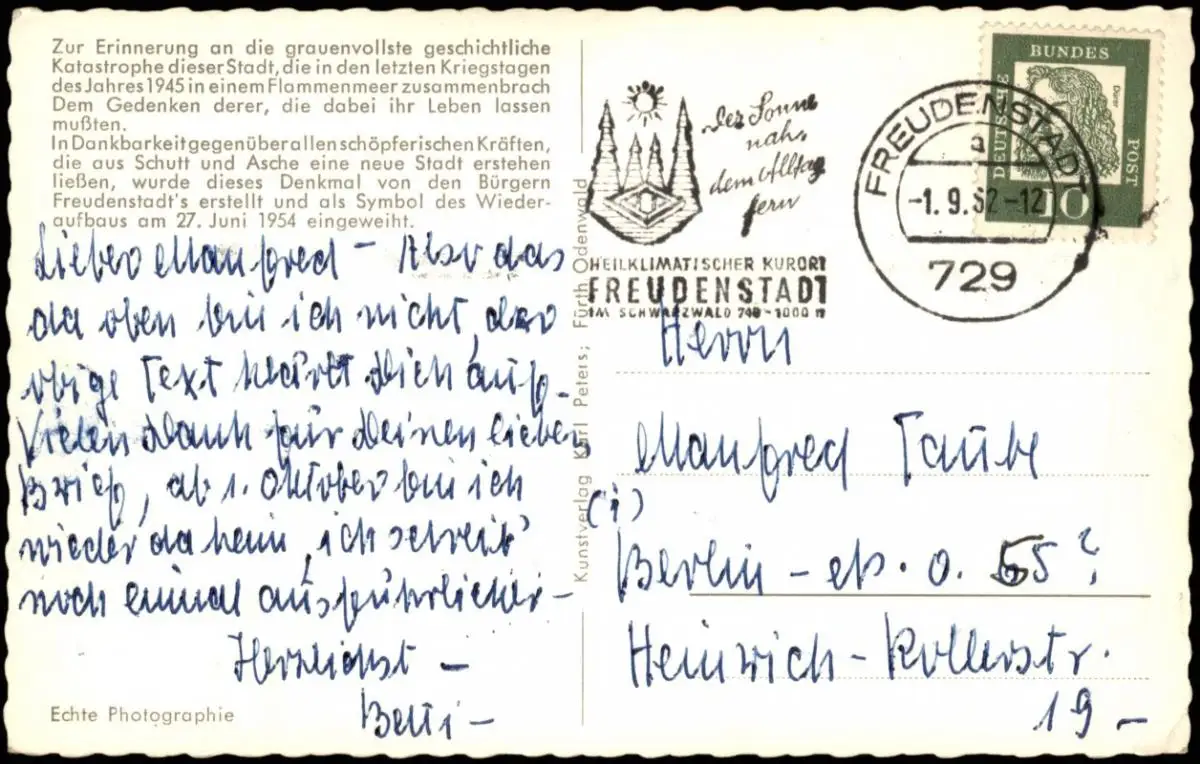 Zur Erinnerung an die grauenvollste geschichtliche
Katastrophe dieser Stadt, die in den letzten Kriegstagen
des Jahres 1945 in einem Flammenmeer zusammenbrach
Dem Gedenken derer, die dabei ihr Leben lassen
mußten.
In Dankbarkeit gegenüber allen schöpferischen Kräften,
die aus Schutt und Asche eine neue Stadt erstehen
ließen, wurde dieses Denkmal von den Bürgern
Freudenstadt's erstellt und als Symbol des Wieder-
aufbaus am 27. Juni 1954 eingeweiht.
Lieber Manfred – Also das
da oben bin ich nicht, der
obige Text klärt Dich auf –
Vielen Dank für Deinen lieben
Brief, ab 1. Oktober bin ich
wieder daheim, ich schreib'
noch einmal ausführlicher –
Herzlichst –
Betti –
Echte Photographie
Kunstverlag Karl Peters; Fürth Odenwald
Der Sonne
nah,
dem Alltag
fern
HEILKLIMATISCHER KURORT
FREUDENSTADT
IM SCHWARZWALD 740-1000 m
FREUDENSTADT
a
-1. 9. 62-12
729
DEUTSCHE
BUNDES
POST
Dürer
10
Herrn
Manfred Taube
(1)
Berlin – N. O. 55?
Heinrich-Rollerstr.
19 –